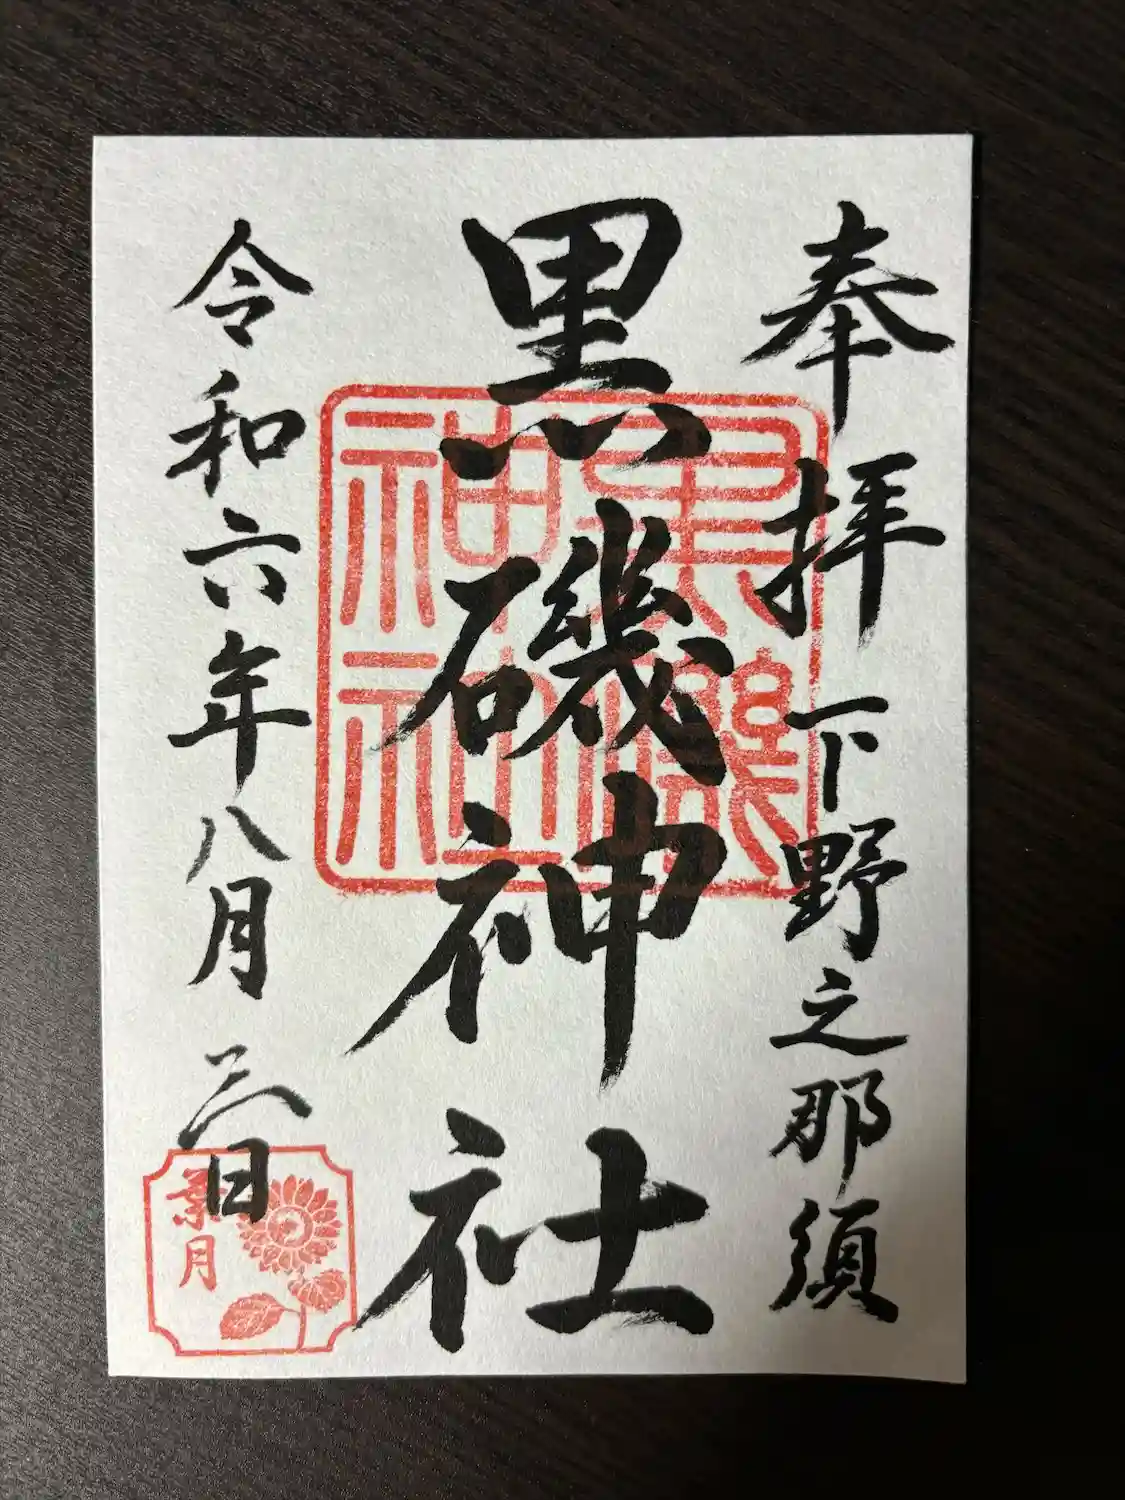 奉拝 下野之那須
黒磯神社
令和六年八月三日
黒磯
神社
葉月